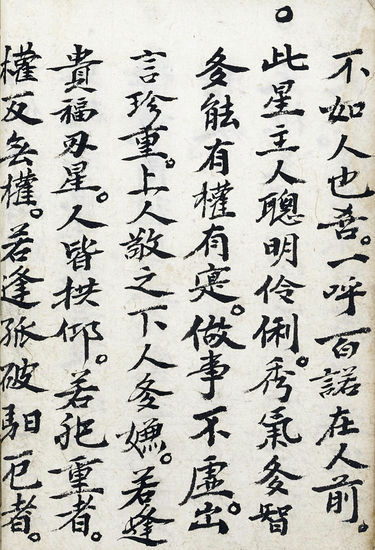 不如人也吾。一呼百諾在人前。
○此星主人聰明伶俐。秀氣多智
多能有權有寔。做事不虛出
言珍重。上人敬之下人多嫌。若逢
貴福刃星。人皆拱仰。若犯重者。
權反無權。若逢孤破馹厄者。